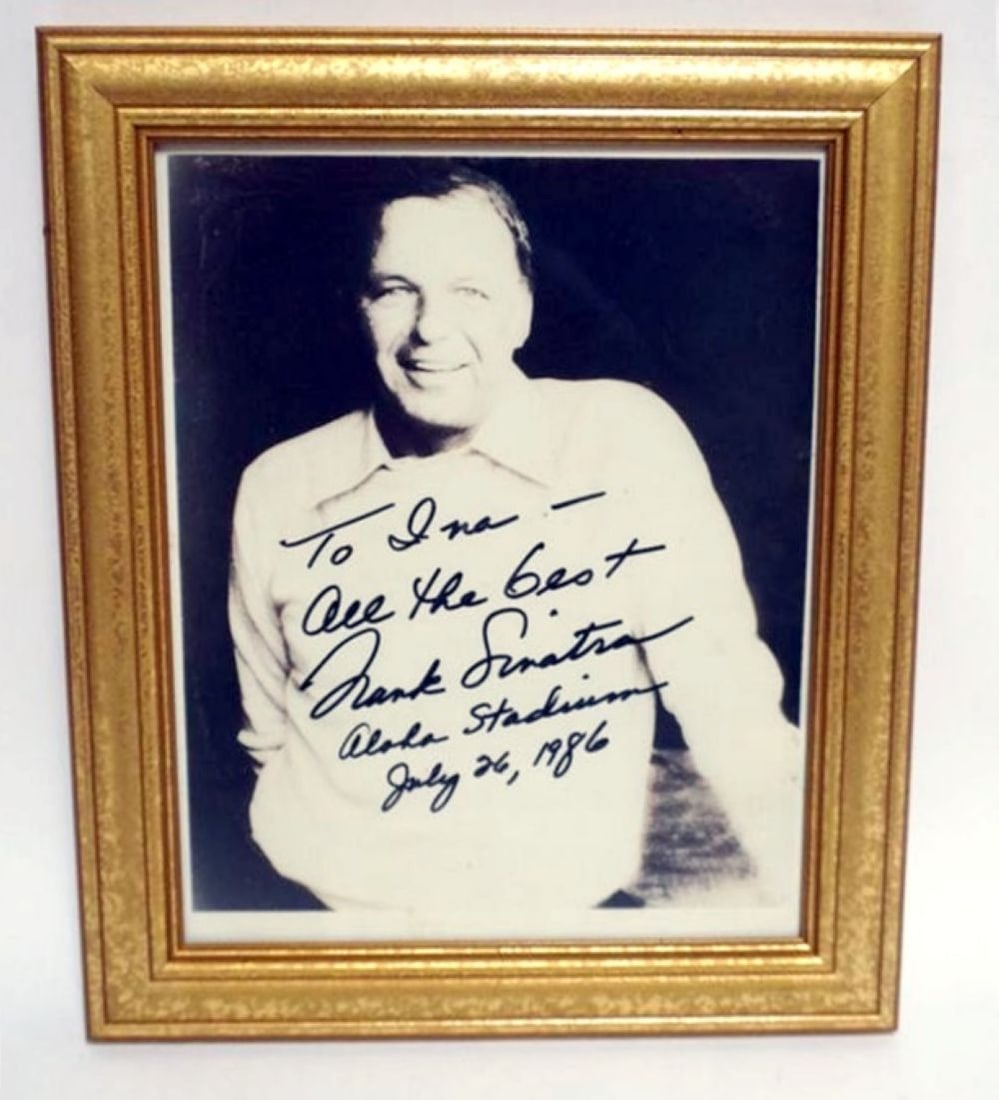 To Ina —
All the best
Frank Sinatra
Aloha Stadium
July 26, 1986